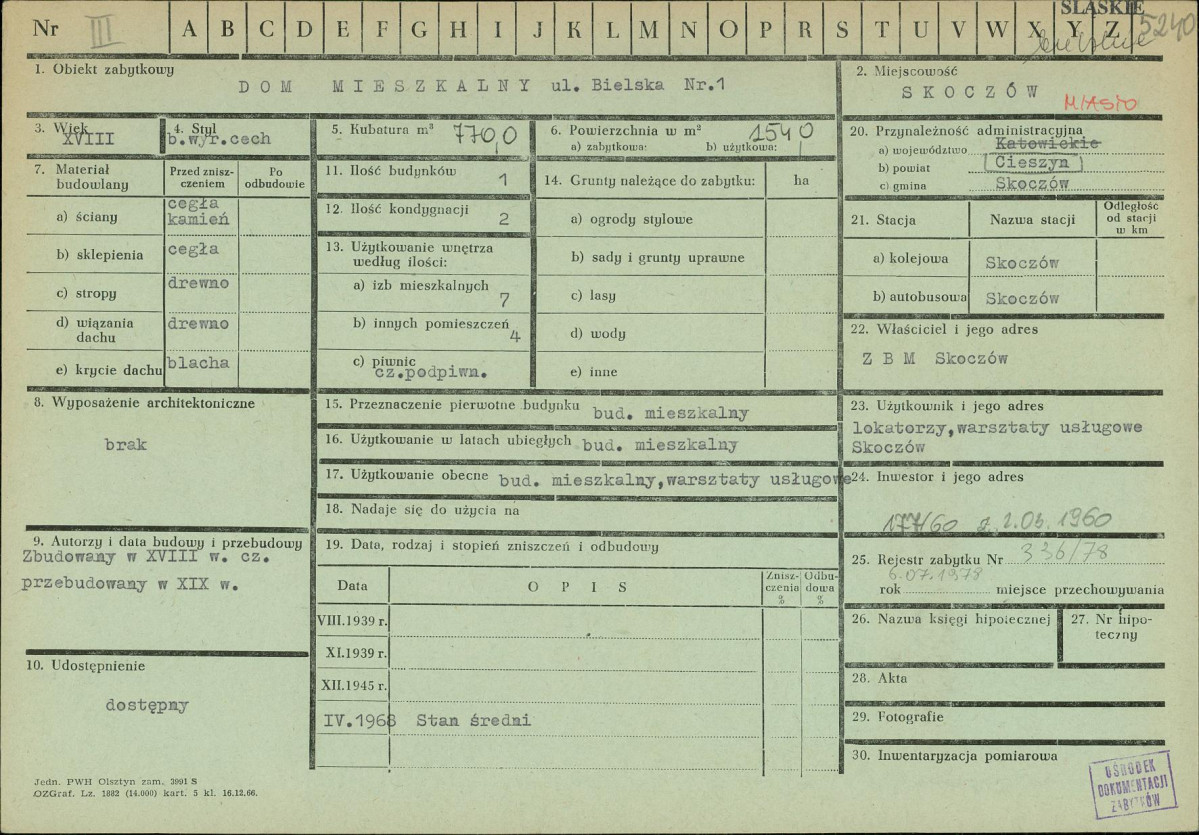 Nr III A B C D E F G H I J K L M N O P R S T U V W X Y Z
ŚLĄSKIE
5240
1. Obiekt zabytkowy
DOM MIESZKALNY ul. Bielska Nr.1
2. Miejscowość
SKOCZÓW
MIASTO
3. Wiek
XVIII
4. Styl
b.wyr.cech
5. Kubatura m³ 770,0
6. Powierzchnia w m²
a) zabytkowa: b) użytkowa:
154 0
7. Materiał budowlany
Przed znisz-
czeniem
Po
odbudowie
a) ściany
cegła
kamień
b) sklepienia cegła
c) stropy drewno
d) wiązania
dachu
drewno
e) krycie dachu blacha
8. Wyposażenie architektoniczne
brak
9. Autorzy i data budowy i przebudowy
Zbudowany w XVIII w. cz.
przebudowany w XIX w.
10. Udostępnienie
dostępny
11. Ilość budynków 1
12. Ilość kondygnacji 2
13. Użytkowanie wnętrza
według ilości:
a) izb mieszkalnych 7
b) innych pomieszczeń 4
c) piwnic
cz.podpiwn.
14. Grunty należące do zabytku: ha
a) ogrody stylowe
b) sady i grunty uprawne
c) lasy
d) wody
e) inne
15. Przeznaczenie pierwotne budynku bud. mieszkalny
16. Użytkowanie w latach ubiegłych bud. mieszkalny
17. Użytkowanie obecne bud. mieszkalny,warsztaty usługowe
18. Nadaje się do użycia na
19. Data, rodzaj i stopień zniszczeń i odbudowy
Data OPIS
Znisz-
czenia
%
Odbu-
dowa
%
VIII.1939 r.
XI.1939 r.
XII.1945 r.
IV.1968 Stan średni
20. Przynależność administracyjna
a) województwo Katowickie
b) powiat Cieszyn
c) gmina Skoczów
21. Stacja Nazwa stacji
Odległość
od stacji
w km
a) kolejowa Skoczów
b) autobusowa Skoczów
22. Właściciel i jego adres
Z B M Skoczów
23. Użytkownik i jego adres
lokatorzy,warsztaty usługowe
Skoczów
24. Inwestor i jego adres
177/60 z 2.03.1960
25. Rejestr zabytku Nr 336/78
6.07.1978
rok miejsce przechowywania
26. Nazwa księgi hipotecznej
27. Nr hipo-
teczny
28. Akta
29. Fotografie
30. Inwentaryzacja pomiarowa
OŚRODEK
DOKUMENTACJI
ZABYTKÓW
Jedn. PWH Olsztyn zam. 3991 S
OZGraf. Lz. 1882 (14.000) kart. 5 kl. 16.12.66.